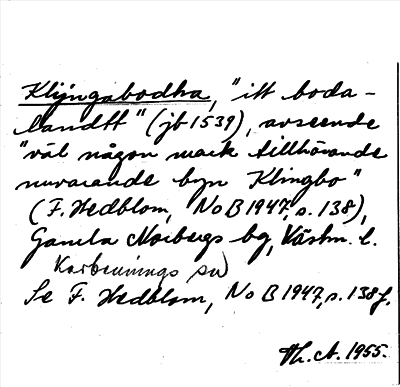 Klijngabodha, "itt boda-
landtt" (jb 1539), avseende
"väl någon mark tillhörande
nuvarande byn Klingbo"
(F. Hedblom, NoB 1947, s. 138),
Gamla Norbergs bg, Västm. l.
Karbennings sn)
Se F. Hedblom, NoB 1947, s. 138 f.
Th. A. 1955.